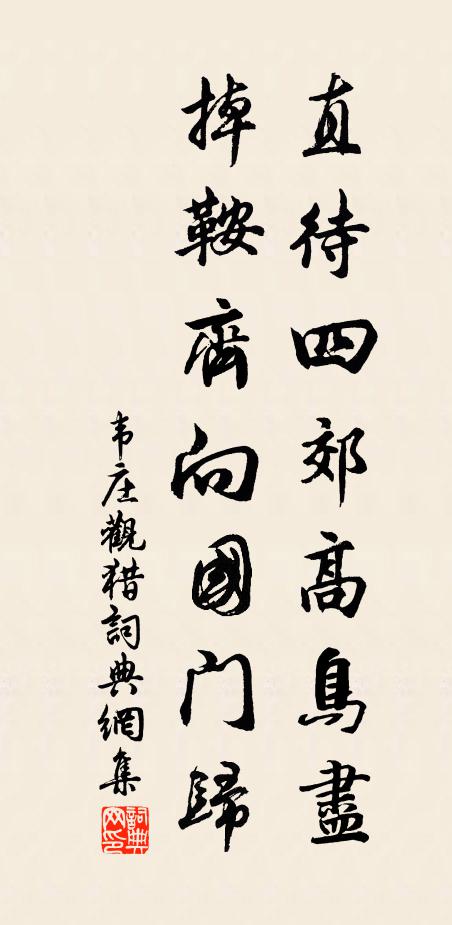 直待四郊高鳥盡
掉鞍齊向國門歸
韦庄觀猎詞典網集
詞典網印